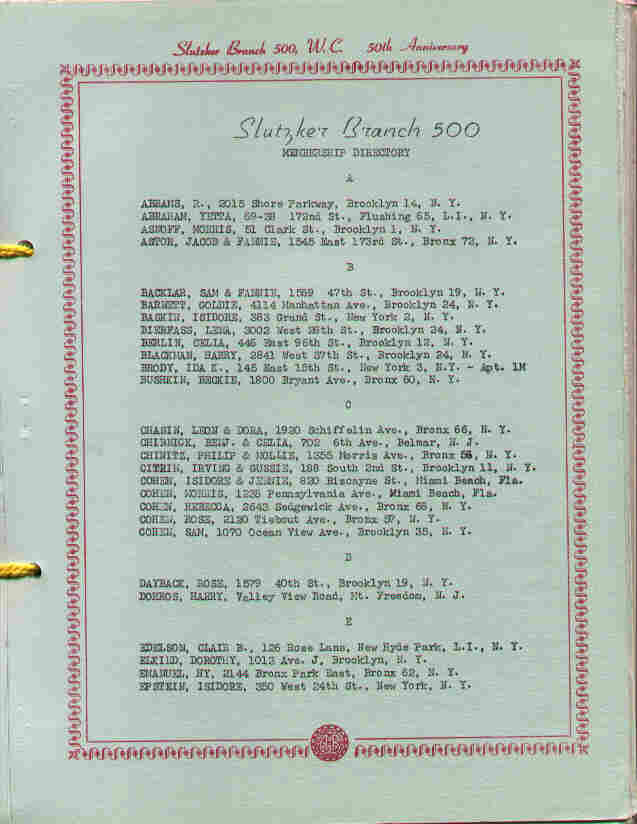 Slutzker Branch 500, W.C. 50th Anniversary
Slutzker Branch 500
MEMBERSHIP DIRECTORY
A
ABRAMS, R., 2015 Shore Parkway, Brooklyn 14, N. Y.
ABRAHAM, YETTA, 69-38 172nd St., Flushing 65, L.I., N. Y.
ASNOFF, MORRIS, 51 Clark St., Brooklyn 1, N. Y.
ASTOR, JACOB & FANNIE, 1545 East 173rd St., Bronx 72, N. Y.
B
BACKLAR, SAM & FANNIE, 1569 47th St., Brooklyn 19, N. Y.
BARNETT, GOLDIE, 4114 Manhattan Ave., Brooklyn 24, N. Y.
BASKIN, ISIDORE, 383 Grand St., New York 2, N. Y.
BIERFASS, LENA, 3002 West 28th St., Brooklyn 24, N. Y.
BERLIN, CELIA, 446 East 96th St., Brooklyn 12, N. Y.
BLACKMAN, HARRY, 2841 West 37th St., Brooklyn 24, N. Y.
BRODY, IDA K., 145 East 15th St., New York 3, N.Y. - Apt. 1M
BUSHKIN, BECKIE, 1800 Bryant Ave., Bronx 60, N. Y.
C
CHASIN, LEON & DORA, 1920 Schiffelin Ave., Bronx 66, N. Y.
CHIRNICK, BENJ. & CELIA, 702 6th Ave., Belmar, N. J.
CHINITZ, PHILIP & MOLLIE, 1355 Morris Ave., Bronx 56, N. Y.
CITRIN, IRVING & GUSSIE, 188 South 2nd St., Brooklyn 11, N. Y.
COHEN, ISIDORE & JENNIE, 820 Biscayne St., Miami Beach, Fla.
COHEN, MORRIS, 1235 Pennsylvania Ave., Miami Beach, Fla.
COHEN, REBECCA, 2643 Sedgewick Ave., Bronx 68, N. Y.
COHEN, ROSE, 2120 Tiebout Ave., Bronx 57, N. Y.
COHEN, SAM, 1070 Ocean View Ave., Brooklyn 35, N. Y.
D
DAYBACK, ROSE, 1579 40th St., Brooklyn 19, N. Y.
DOBROS, HARRY, Valley View Road, Mt. Freedom, N. J.
E
EDELSON, CLAIR B., 126 Rose Lane, New Hyde Park, L.I., N. Y.
ELKIND, DOROTHY, 1013 Ave. J, Brooklyn, N. Y.
EMANUEL, HY, 2144 Bronx Park East, Bronx 62, N. Y.
EPSTEIN, ISIDORE, 350 West 24th St., New York, N. Y.